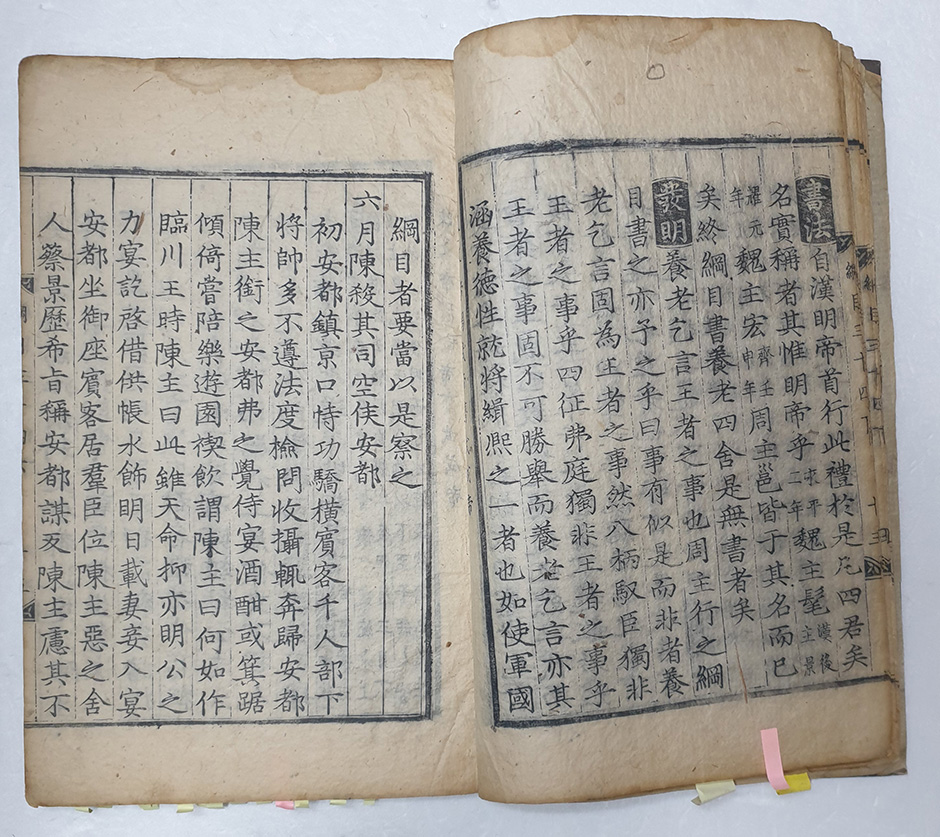 書法 自漢明帝首行此禮於是凡四君矣
名實稱者其惟明帝乎永平二年魏主髦漢後主景
耀元年魏主宏齊壬申年周主邕皆于其名而已
矣終綱目書養老四舍是無書者矣
發明 養老乞言王者之事也周主行之綱
目書之亦予之乎曰事有似是而非者養
老乞言固為王者之事然八柄馭臣獨非
王者之事乎四征弗庭獨非王者之事乎
王者之事固不可勝舉而養老乞言亦其
涵養德性就將緝熙之一者也如使軍國
綱目者要當以是察之
六月陳殺其司空侯安都
初安都鎮京口恃功驕橫賓客千人部下
將帥多不遵法度檢問收攝輒奔歸安都
陳主銜之安都弗之覺侍宴酒酣或箕踞
傾倚嘗陪樂遊園禊飲謂陳主曰何如作
臨川王時陳主曰此雖天命抑亦明公之
力宴訖啓借供帳水飾明日載妻妾入宴
安都坐御座賓客居羣臣位陳主惡之舍
人蔡景歷希旨稱安都謀反陳主慮其不